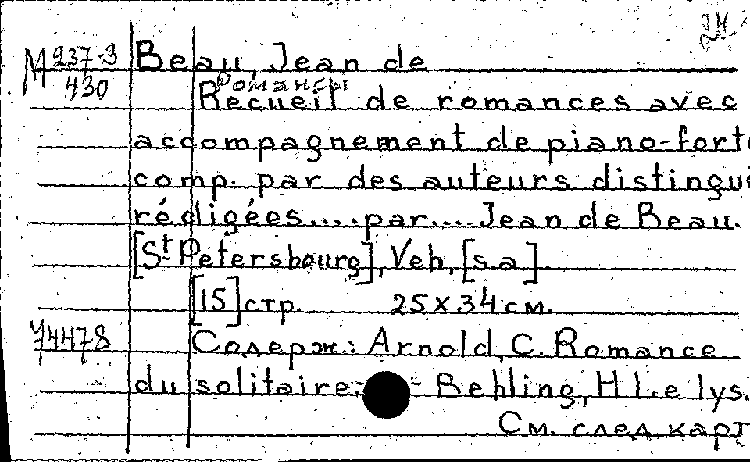 М 937-3 Beau, Jean de
430 Романсы
Recueil de romances avec
accompagnement de piano-forte
comp. par des auteurs distingui
rédigées.... par.... Jean de Beau.
[St Petersbourg], Veh, [s.a]
[15] стр. 25 x 34 см.
74478 Содерж: Arnold, C. Romance
du solitaire. - Behling, H Le lys.
См. след карт